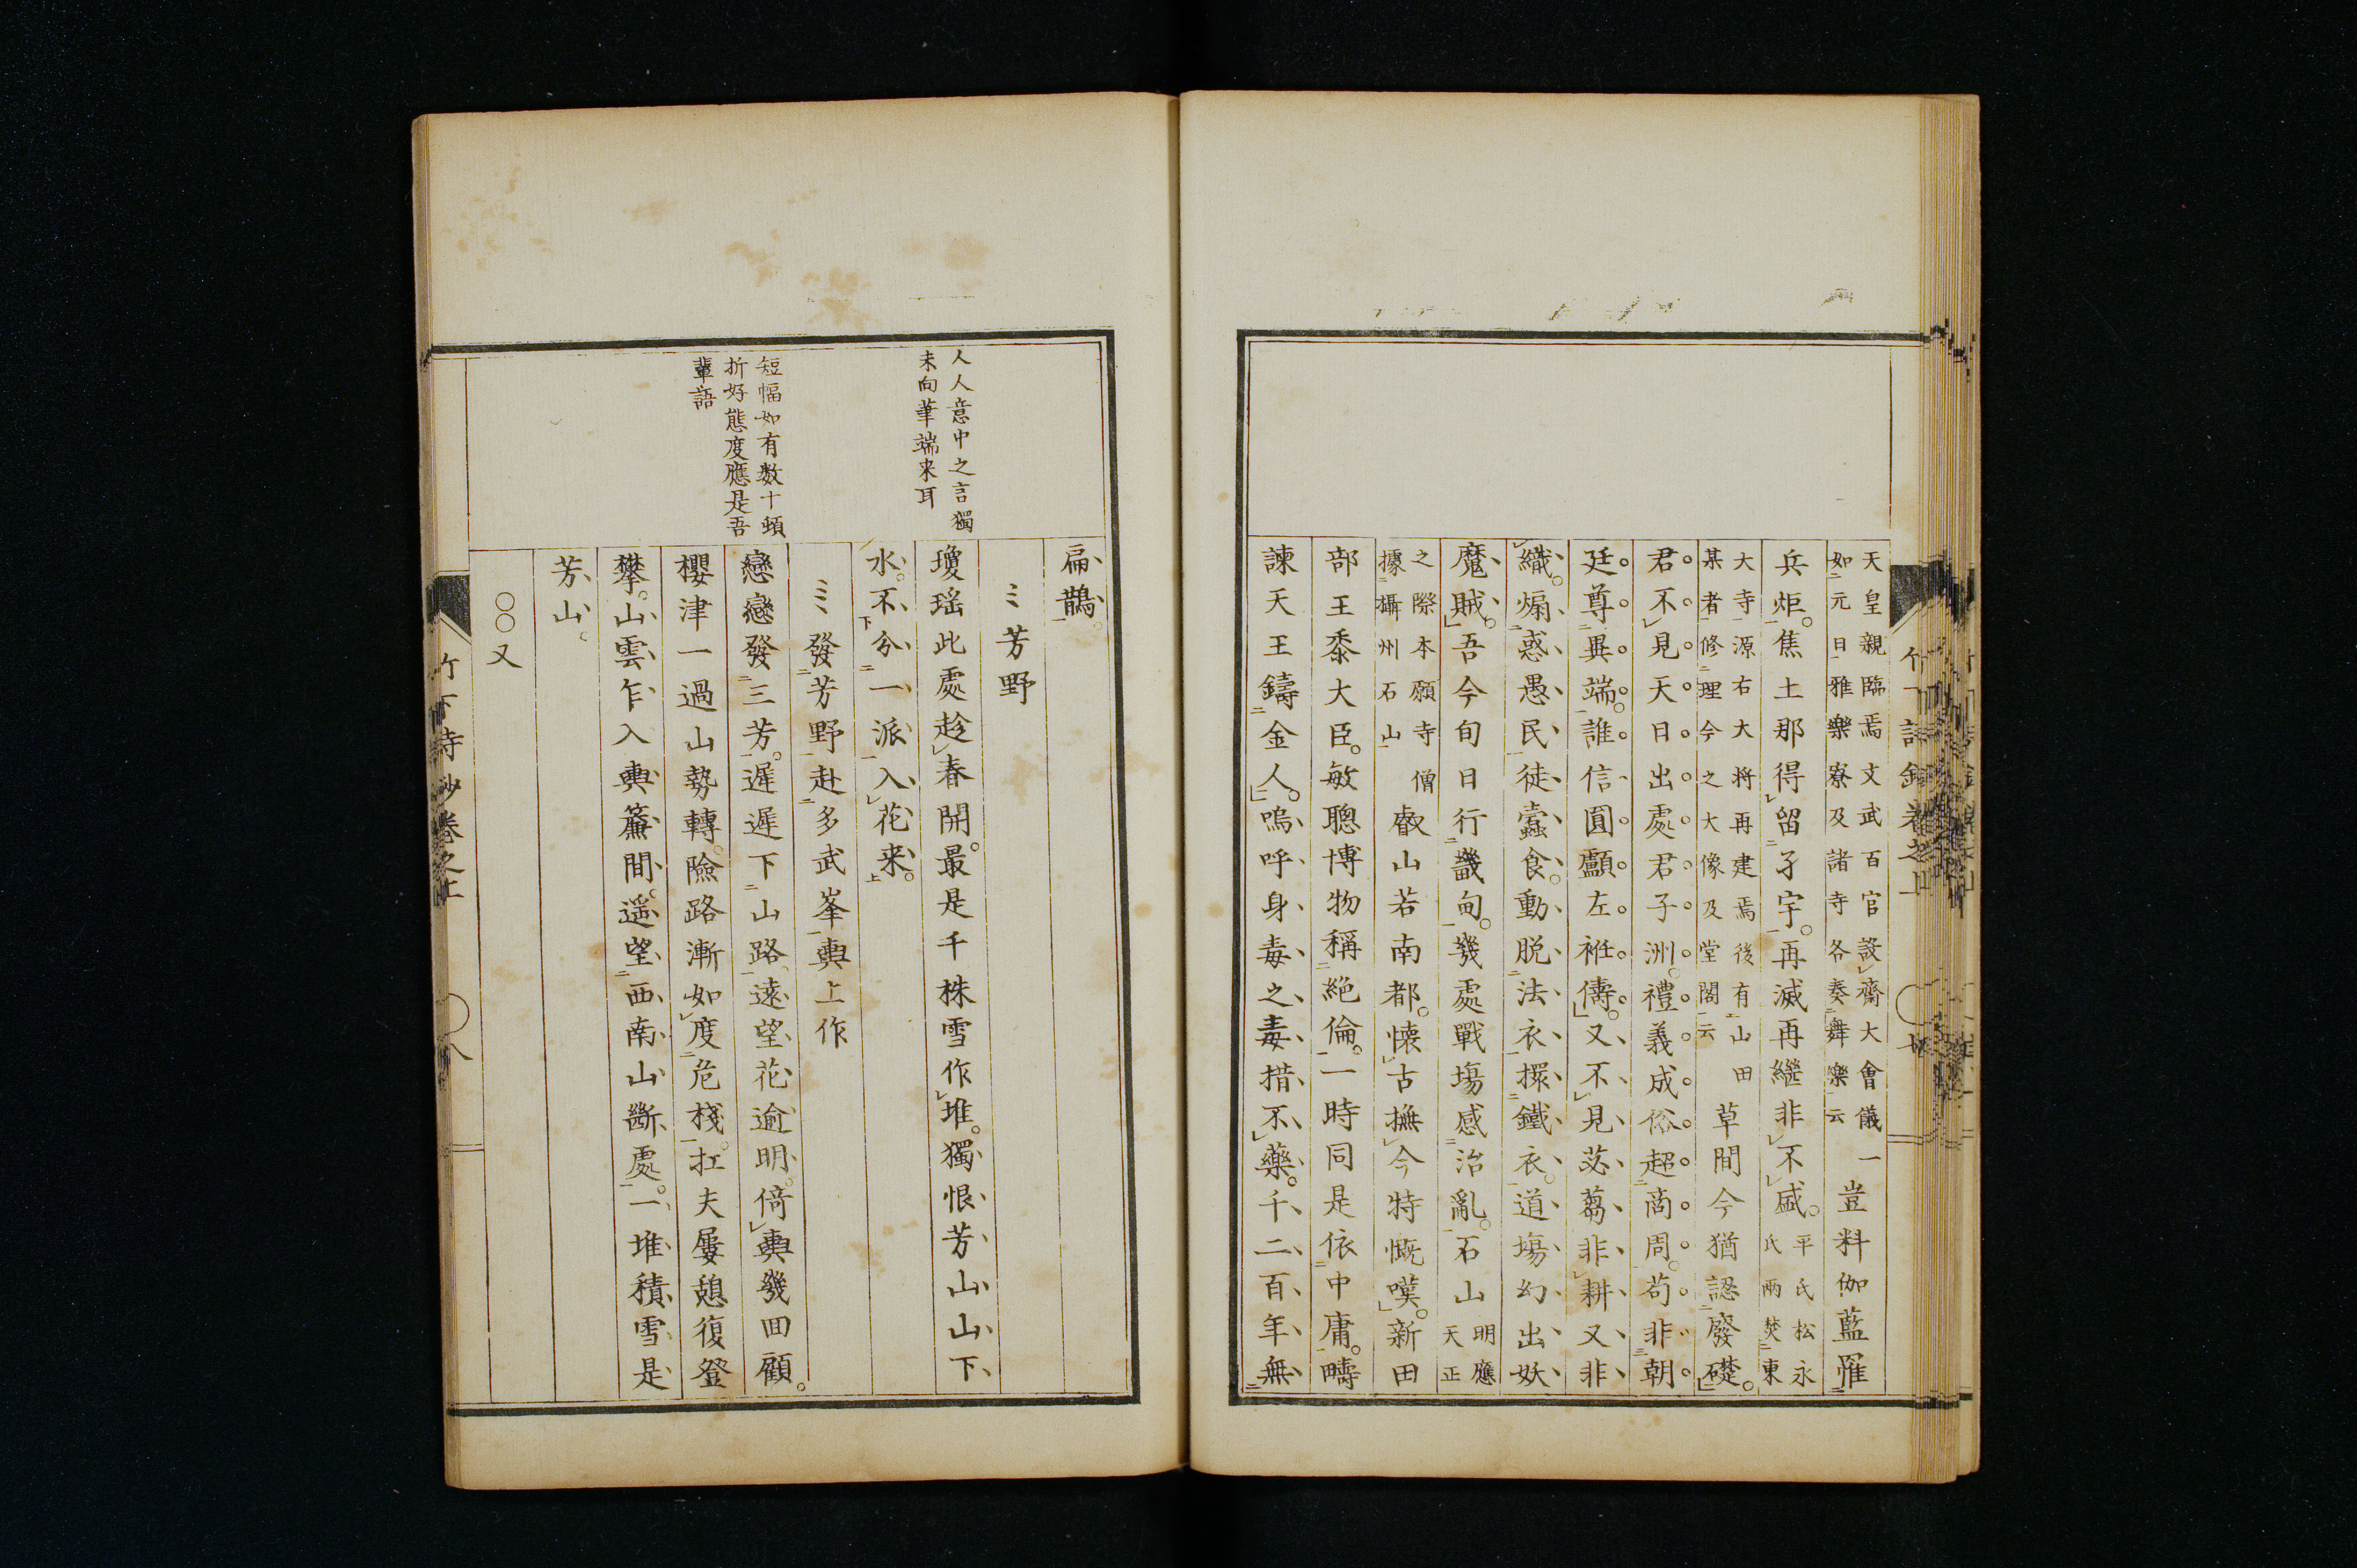 天皇親臨焉文武百官設齋大會儀一
如元日雅樂寮及諸寺各奏舞樂云
豈料伽藍罹
兵炬焦土那得留孑宇再滅再繼非不盛
平氏松永
氏兩焚東
大寺源右大将再建焉後有山田
某者修理今之大像及堂閣云
草間今猶認廢礎
君不見天日出處君子洲禮義成俗超商周苟非朝
廷尊異端誰信圓顱左袵儔又不見苾蒭非耕又非
織煽惑愚民徒蠹食動脱法衣擐鐵衣道塲幻出妖
魔賊吾今旬日行畿甸幾處戰塲感治亂石山
明應
天正
之際本願寺僧
據攝州石山
叡山若南都懷古撫今特慨嘆新田
部王黍大臣敏聰博物稱絕倫一時同是依中庸疇
諫天王鑄金人嗚呼身毒之毒措不藥千二百年無
竹下詩鈔卷之上
七
扁鵲
芳野
瓊瑶此處趁春開最是千株雪作堆獨恨芳山山下
水不分一派入花来
人人意中之言獨
未向筆端来耳
發芳野赴多武峯輿上作
戀戀發三芳遲遲下山路遠望花逾明倚輿幾回顧
櫻津一過山勢轉險路漸如度危棧扛夫屢憩復登
攀山雲乍入輿簾間遥望西南山斷處一堆積雪是
芳山
短幅如有数十頓
折好態度應是吾
輩語
○○又
竹下詩鈔卷之上
八